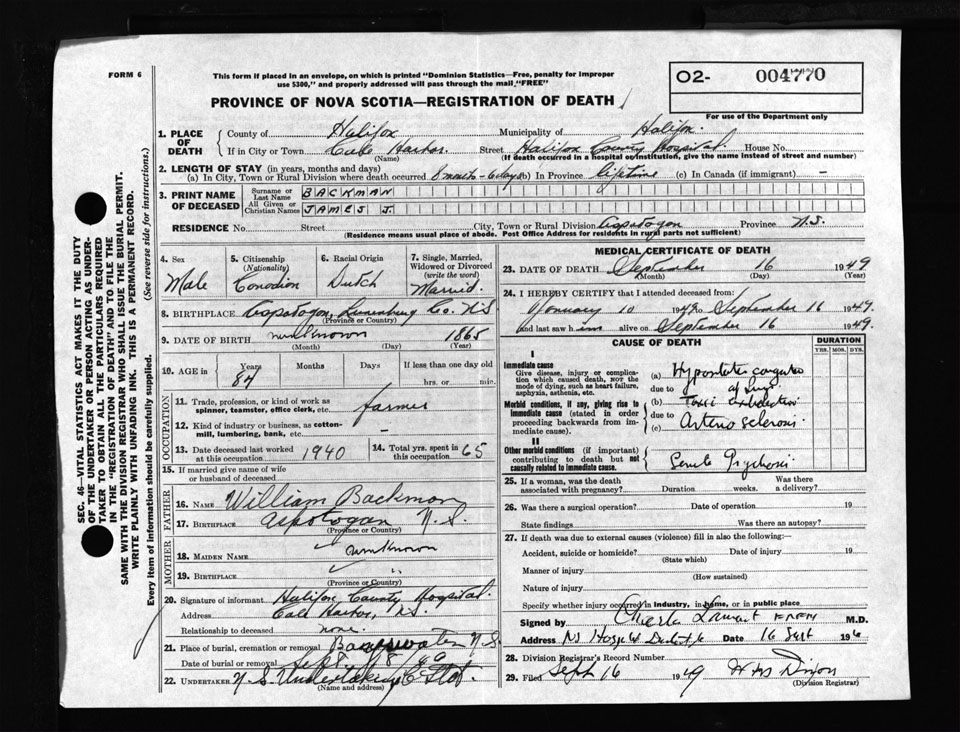 FORM 6
This form if placed in an envelope, on which is printed "Dominion Statistics—Free, penalty for improper
use $300," and properly addressed will pass through the mail "FREE"
O2- 004770
For use of the Department only
PROVINCE OF NOVA SCOTIA—REGISTRATION OF DEATH
1. PLACE OF DEATH
County of Halifax Municipality of Halifax.
If in City or Town Cole Harbor. Street Halifax County Hospital. House No.
(Name) (If death occurred in a hospital or institution, give the name instead of street and number)
2. LENGTH OF STAY (in years, months and days)
(a) In City, Town or Rural Division where death occurred 8 months - 6 days (b) In Province lifetime (c) In Canada (if immigrant) —
3. PRINT NAME OF DECEASED
Surname or Last Name BACKMAN
All Given or Christian Names JAMES J.
RESIDENCE No. Street City, Town or Rural Division Aspotogon Province N.S.
(Residence means usual place of abode. Post Office Address for residents in rural parts not sufficient)
4. Sex Male
5. Citizenship (Nationality) Canadian
6. Racial Origin Dutch
7. Single, Married, Widowed or Divorced (write the word) Married.
8. BIRTHPLACE Aspotogon, Lunenburg Co. N.S
(Province or Country)
9. DATE OF BIRTH unknown 1865
(Month) (Day) (Year)
10. AGE in Years 84 Months Days If less than one day
hrs. or min.
OCCUPATION
11. Trade, profession, or kind of work as
spinner, teamster, office clerk, etc. farmer
12. Kind of industry or business, as cotton-
mill, lumbering, bank, etc. -
13. Date deceased last worked at this occupation 1940
14. Total yrs. spent in this occupation 65
15. If married give name of wife
or husband of deceased
FATHER
16. NAME William Backman
17. BIRTHPLACE Aspotogan N.S.
(Province or Country)
MOTHER
18. MAIDEN NAME unknown
19. BIRTHPLACE "
(Province or Country)
20. Signature of informant Halifax County Hospital.
Address Cole Harbor, N.S.
Relationship to deceased none.
21. Place of burial, cremation or removal N.S.
Date of burial or removal
22. UNDERTAKER N.S. Undertaking
(Name and address)
MEDICAL CERTIFICATE OF DEATH
23. DATE OF DEATH September 16 1949
(Month) (Day) (Year)
24. I HEREBY CERTIFY that I attended deceased from:
January 10 1949 to September 16 1949.
and last saw him alive on September 16 1949.
CAUSE OF DEATH DURATION
YRS. MOS. DYS.
I
Immediate cause
Give disease, injury or complica-
tion which caused death, NOT the
mode of dying, such as heart failure,
asphyxia, asthenia, etc.
Morbid conditions, if any, giving rise to
immediate cause (stated in order
proceeding backwards from im-
mediate cause).
II
Other morbid conditions (if important)
contributing to death but not
causally related to immediate cause.
(a) Hypostatic
due to of lungs
(b) Toxic exhaustion
due to
(c) Arterio sclerosis
Senile Psychosis
25. If a woman, was the death
associated with pregnancy? Duration weeks. Was there
a delivery?
26. Was there a surgical operation? Date of operation 19
State findings Was there an autopsy?
27. If death was due to external causes (violence) fill in also the following:—
Accident, suicide or homicide? Date of injury 19
(State which)
Manner of injury
(How sustained)
Nature of injury
Specify whether injury occurred in industry, in home, or in public place
Signed by M.D.
Address NS Hosp Date 16 Sept
28. Division Registrar's Record Number
29. Filed Sept 16 1949 Dixon
(Division Registrar)
SEC. 46—VITAL STATISTICS ACT MAKES IT THE DUTY
OF THE UNDERTAKER OR PERSON ACTING AS UNDER-
TAKER TO OBTAIN ALL THE PARTICULARS REQUIRED
IN THE "REGISTRATION OF DEATH" AND TO FILE THE
SAME WITH THE DIVISION REGISTRAR WHO SHALL ISSUE THE BURIAL PERMIT.
WRITE PLAINLY WITH UNFADING INK. THIS IS A PERMANENT RECORD.
Every item of information should be carefully supplied. (See reverse side for instructions.)